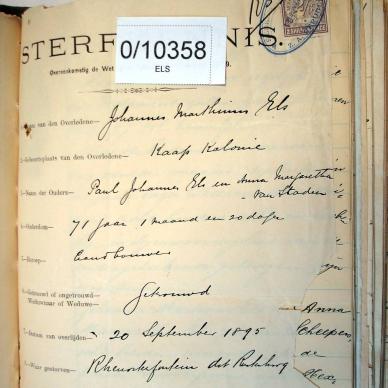 STERF NIS.
0/10358
ELS
Overeenkomstig de Wet
van den Overledene— Johannes Marthinus Els
Geboorteplaats van den Overledene— Kaap Kolonie
Naam der Ouders— Paul Johannes Els en Anna Margaretha
van Staden
Ouderdom— 71 jaar 1 maand en 20 dagen
Beroep— Landbouwer
Getrouwd of ongetrouwd—
Weduwnaar of Weduwe— Getrouwd
Datum van overlijden— 20 September 1895
Waar gestorven— Rhenosterfontein dist
Anna
de